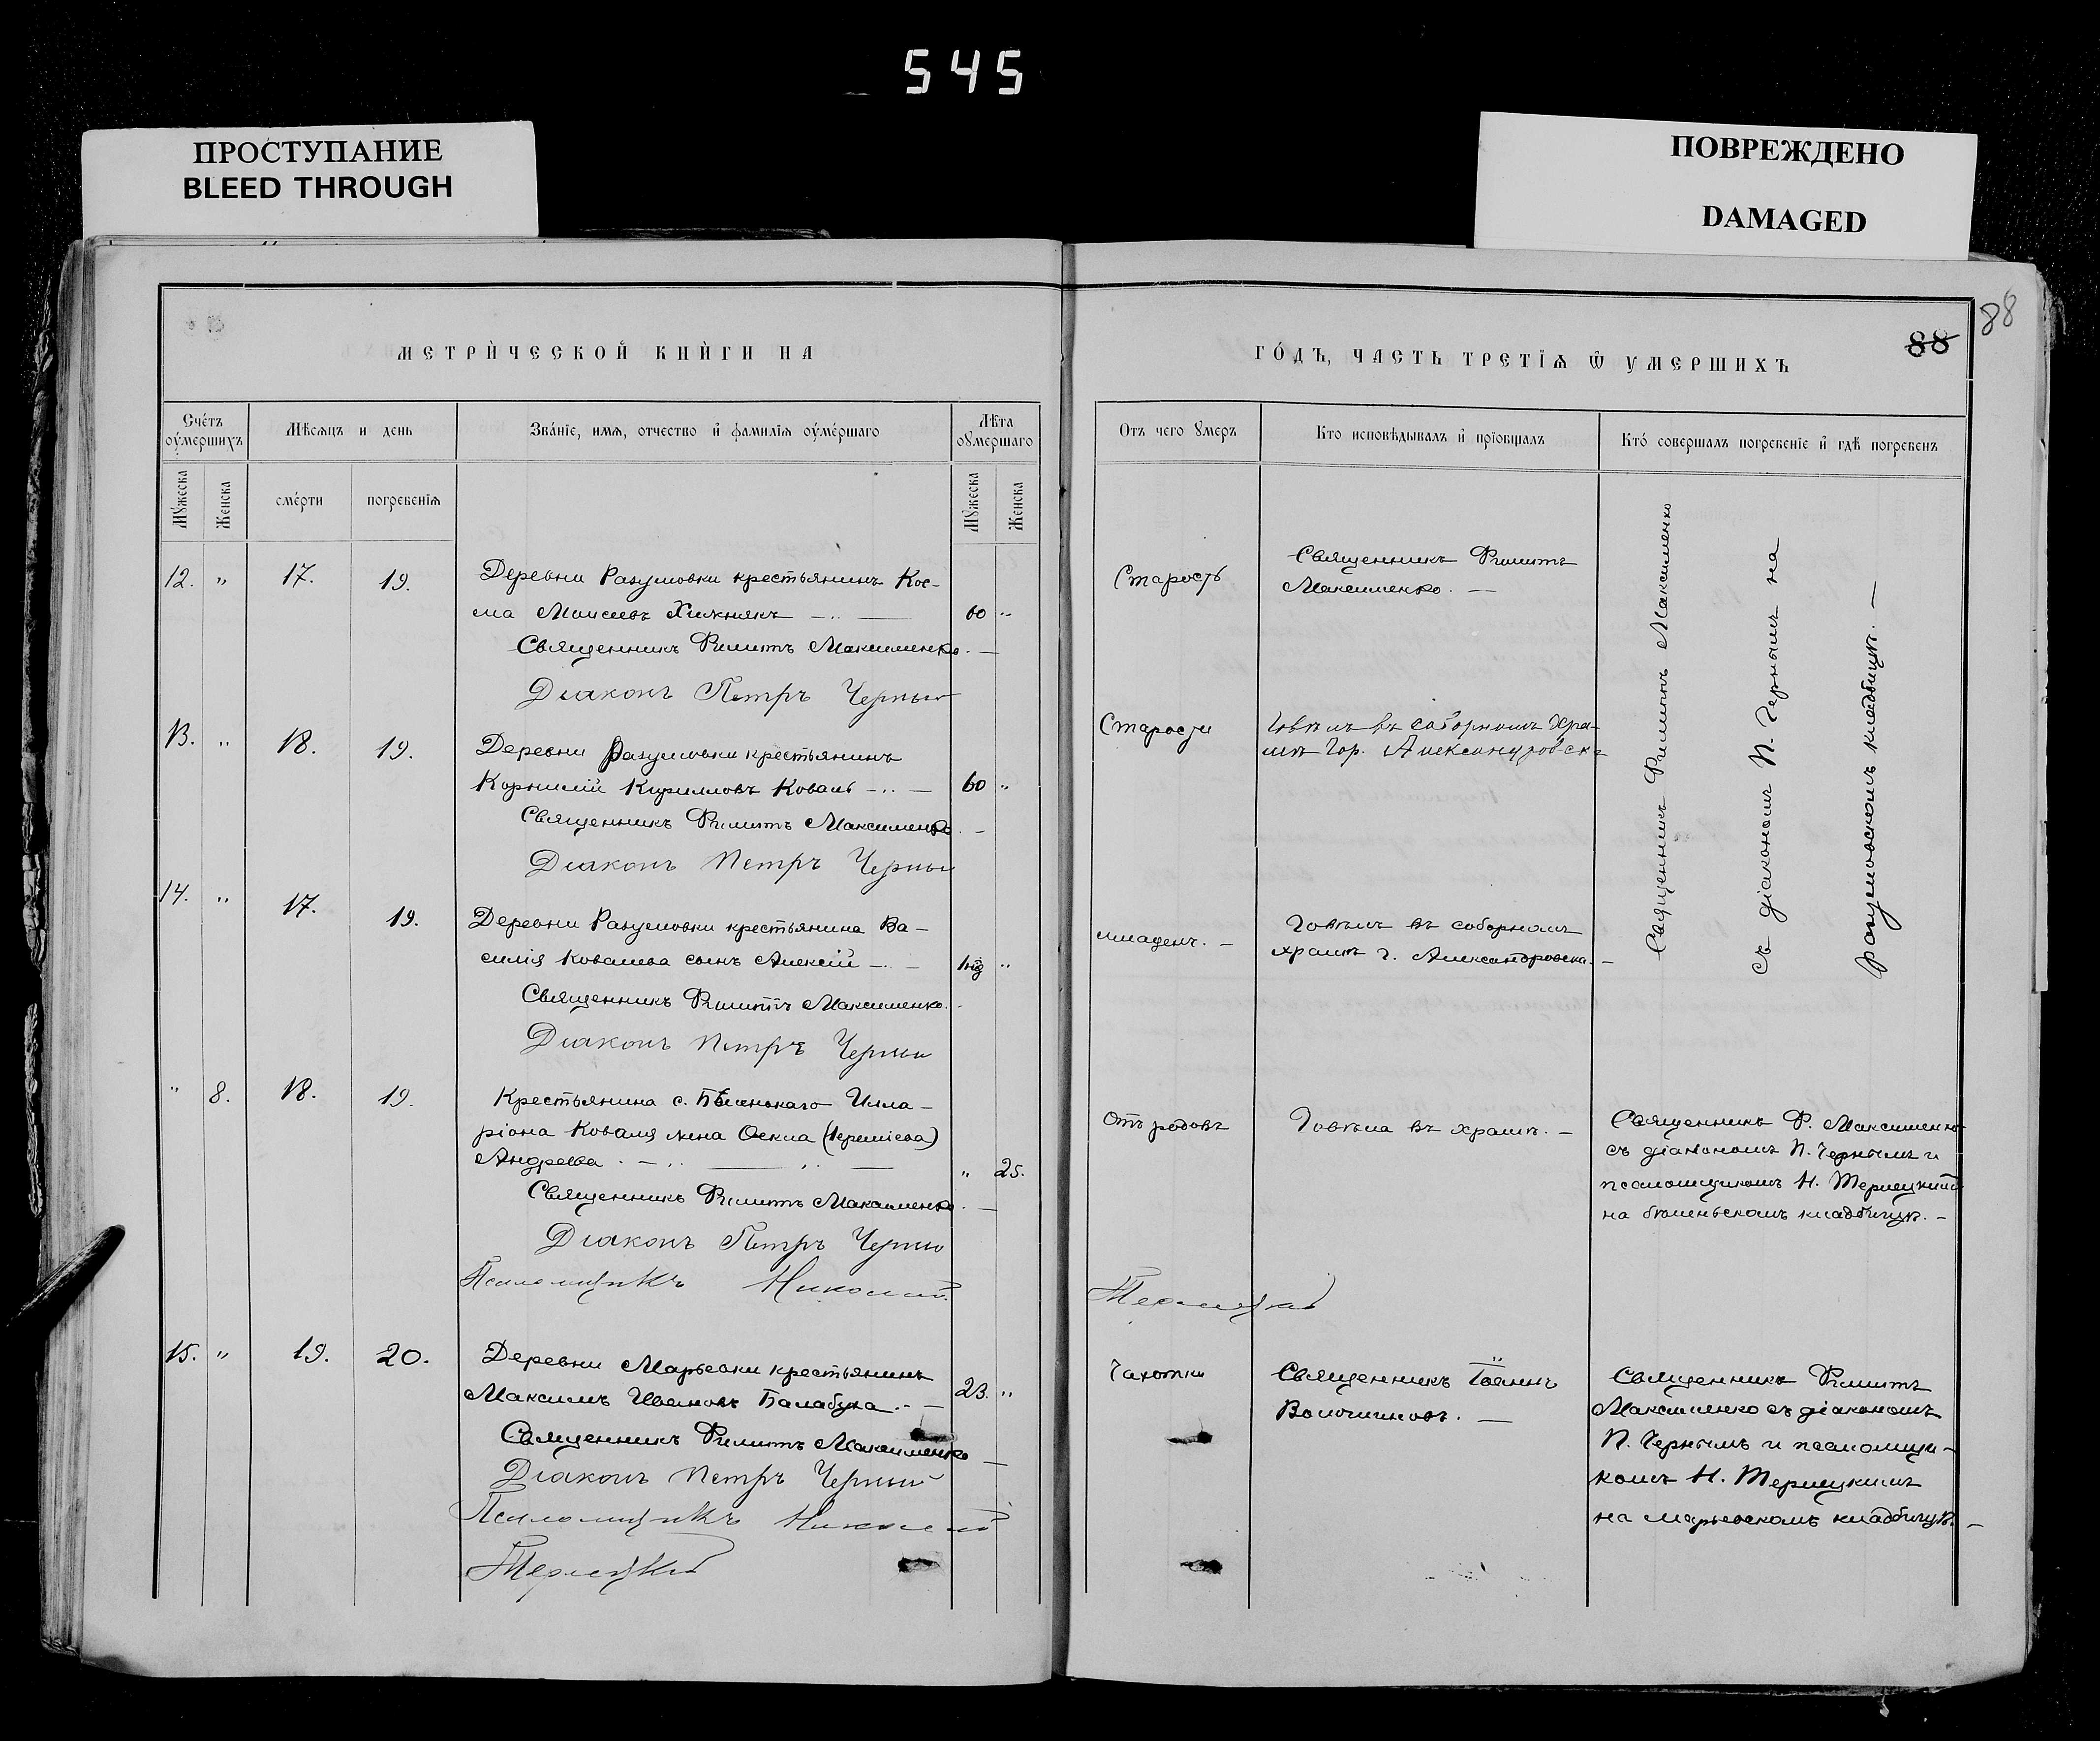 545
ПРОСТУПАНИЕ
BLEED THROUGH
ПОВРЕЖДЕНО
DAMAGED
88
88
МЕТРИ́ЧЕСКОЙ КНИ́ГИ НА
ГО́ДЪ, ЧАСТЬ ТРЕТІѦ Ѡ УМЕРШИХЪ
Сче́тъ оу́мершихъ
Мѣсѧцъ и день
Зва́нїе, имѧ, отчество и҆ фамилїѧ оу҆ме́ршаго
Лѣта оумершаго
Мꙋжеска
Женска
сме́рти
погребенїѧ
Мꙋжеска
Женска
Отъ чего ᲂумеръ
Кто исповѣдывалъ и҆ прїобщалъ
Кто́ совершалъ погребенїе и҆ гдѣ погребенъ
12. " 17. 19.
Деревни Разумовки крестьянинъ Кос-
ма Моисеевъ Хижнякъ 60 "
Священникъ Филиппъ Максименко. —
Діаконъ Петръ Черный
Старость
Священникъ Филиппъ
Максименко. —
Священникъ Филиппъ Максименко
съ діакономъ П. Чернымъ на
разумовскомъ кладбищѣ. —
13. " 18. 19.
Деревни Разумовки крестьянинъ
Корнилій Кирилловъ Коваль 60 "
Священникъ Филиппъ Максименко. —
Діаконъ Петръ Черный
Старости
Говѣлъ въ соборномъ хра-
мѣ гор. Александровска
14. " 17. 19.
Деревни Разумовки крестьянина Ва-
силія Ковалева сынъ Алексій "
Священникъ Филиппъ Максименко.
Діаконъ Петръ Черный
младен. —
Говѣлъ въ соборномъ
храмѣ г. Александровска. —
" 8. 18. 19.
Крестьянина с. Бѣленькаго Илла-
ріона Коваля жена Ѳекла (Іереміева)
Андреева " 25.
Священникъ Филиппъ Максименко. —
Діаконъ Петръ Черный
Псаломщикъ Николай
Терлецкій
Отъ родовъ
Говѣла въ храмѣ. —
Священникъ Ф. Максименко
съ діакономъ П. Чернымъ и
псаломщикомъ Н. Терлецкимъ
на бѣленьскомъ кладбищѣ. —
15. " 19. 20.
Деревни Марьевки крестьянинъ
Максимъ Ивановъ Балабуха 23. "
Священникъ Филиппъ Максименко —
Діаконъ Петръ Черный
Псаломщикъ Николай
Терлецкій
Чахотки
Священникъ Іоаннъ
Волошиновъ. —
Священникъ Филиппъ
Максименко съ діакономъ
П. Чернымъ и псаломщи-
комъ Н. Терлецкимъ
на марьевскомъ кладбищѣ. —